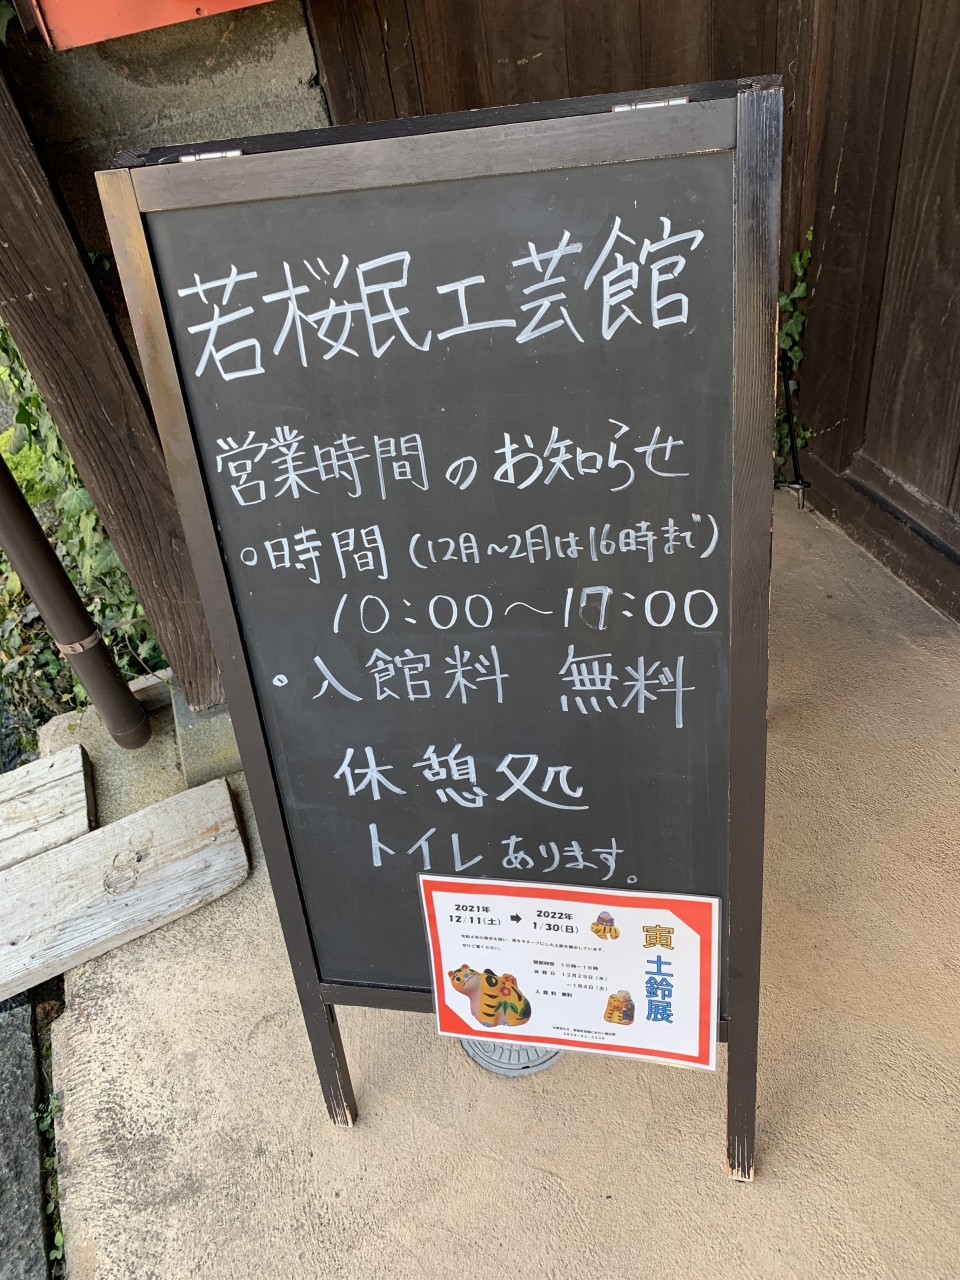 若桜民工芸館
営業時間のお知らせ
・時間 (12月～2月は16時まで)
10:00～17:00
・入館料 無料
休憩処
トイレあります。
2021年
12/11(土)
➡
2022年
1/30(日)
寅 土鈴展
ぜひご覧ください。
開館時間 10時~16時
休館日 12月29日(水)
~1月4日(火)
入館料 無料